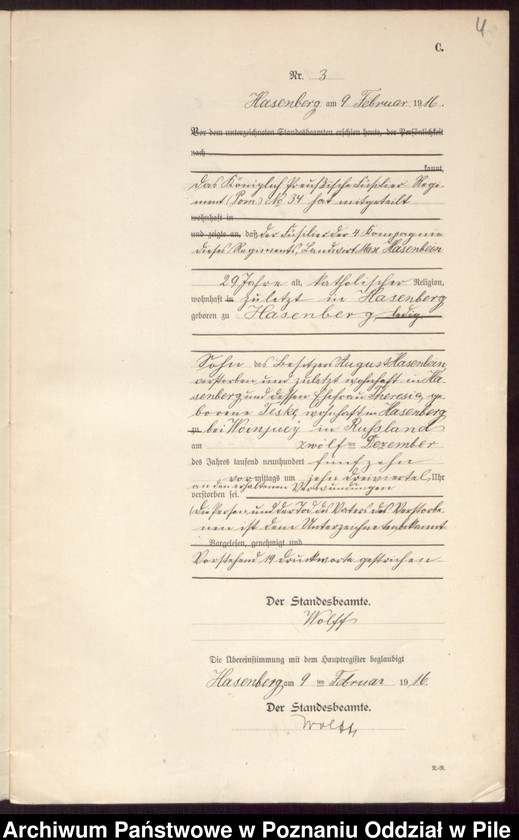 4
C.
Nr. 3
Hasenberg am 9 Februar 1916.
Vor dem unterzeichneten Standesbeamten erschien heute, der Persönlichkeit
nach
kannt,
Das Königlich Preußische Füsilier Regi-
ment (Pom) No 34 hat mitgeteilt
wohnhaft in
und zeigte an, daß der Füsilier der 4 Kompagnie
dieses Regiments, Landwirt Max Hasenbein
29 Jahre alt, katholischer Religion,
wohnhaft in zuletzt in Hasenberg
geboren zu Hasenberg, ledig.
Sohn des Besitzers August Hasenbein,
verstorben und zuletzt wohnhaft in Ha
senberg und dessen Ehefrau Theresia, ge
borene Teske wohnhaft in Hasenberg
zu bei in Rußland
am zwölften Dezember
des Jahres tausend neunhundert fünfzehn
vormittags um zehn dreiviertel Uhr
an den erhaltenen Verwundungen
verstorben sei.
Die Person und der Tod des Vaters des Verstorbe
nen ist dem Unterzeichneten bekannt
Vorgelesen, genehmigt und
Vorstehend 19 Druckworte gestrichen.
Der Standesbeamte.
Wolff
Die Übereinstimmung mit dem Hauptregister beglaubigt
Hasenberg, am 9 ten Februar 1916.
Der Standesbeamte.
Wolff
Archiwum Państwowe w Poznaniu Oddział w Pile